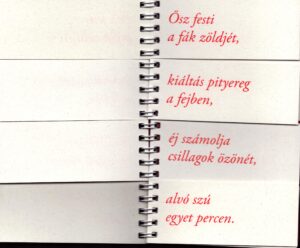 Ősz festi
a fák zöldjét,
kiáltás pityereg
a fejben,
éj számolja
csillagok özönét,
alvó szú
egyet percen.